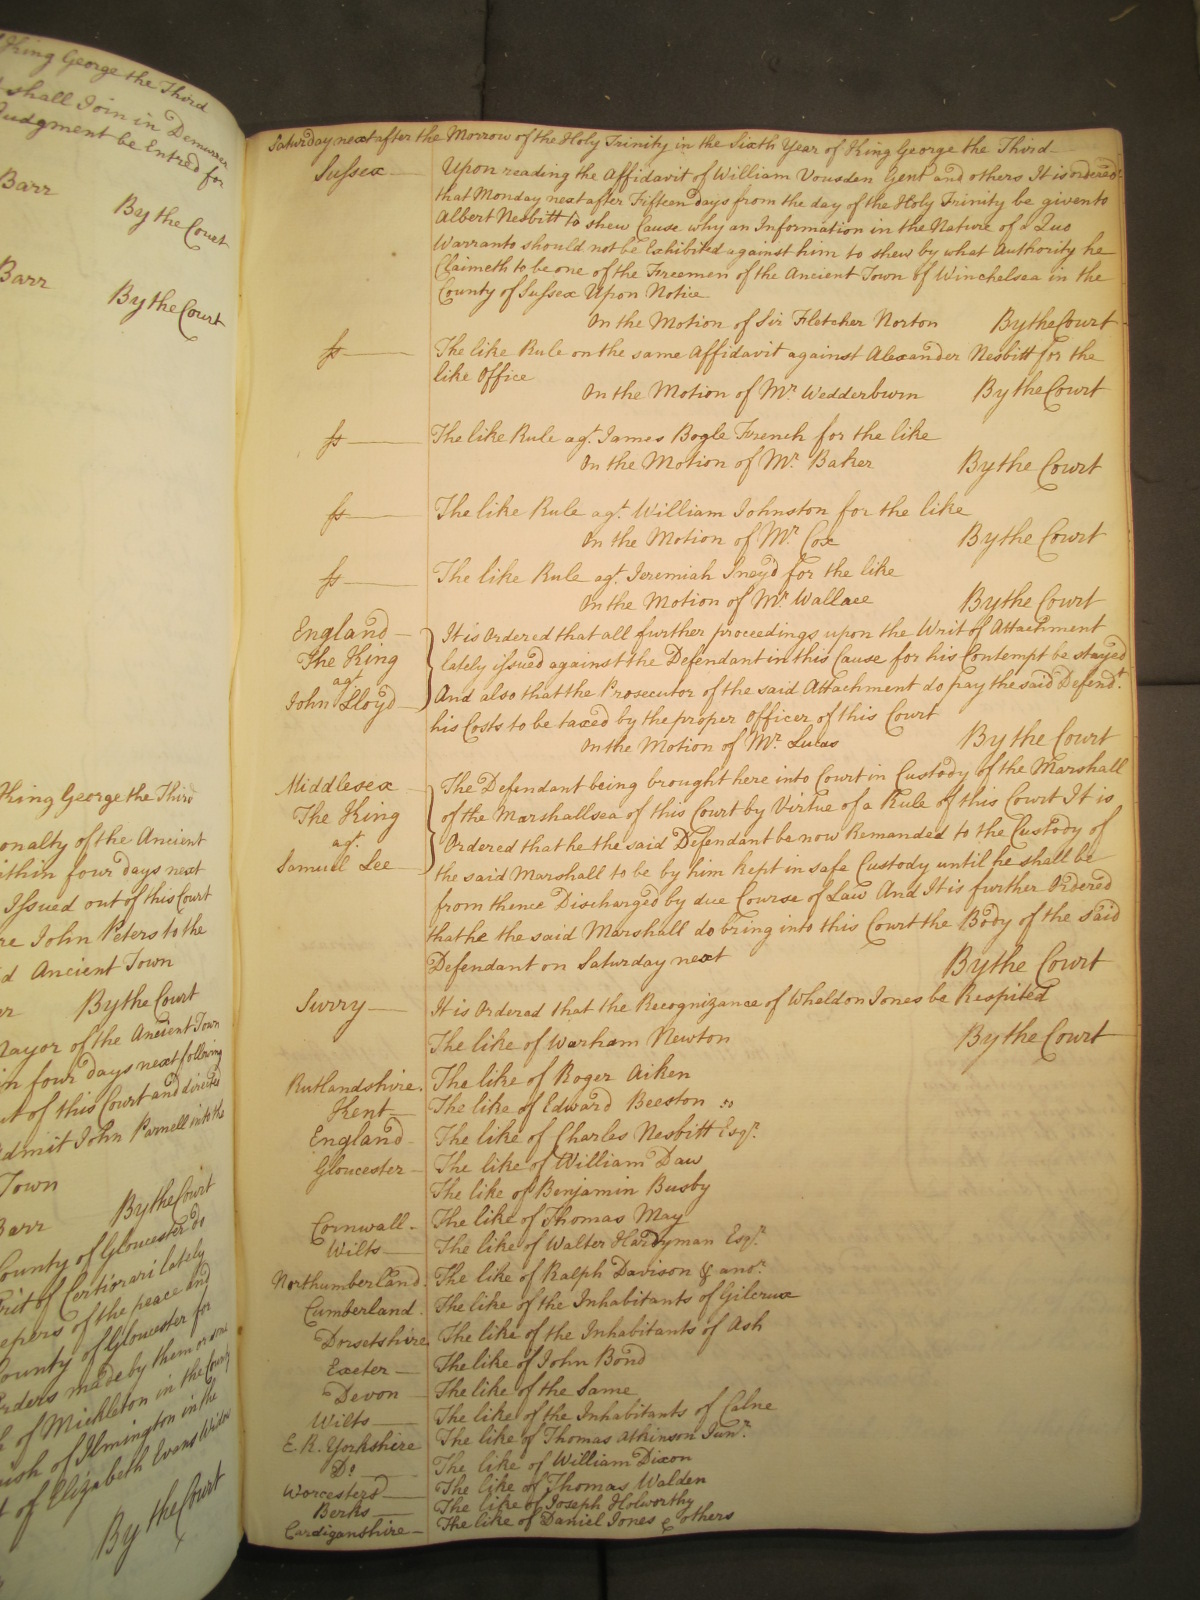 King George the Third
shall Join in Demurrer
Judgment be Entred for
Barr
By the Court
Barr
By the Court
King George the Third
onalty of the Ancient
ithin four days next
Issued out of this Court
re John Peters to the
d Ancient Town
By the Court
Mayor of the Ancient Town
in four days next following
ut of this Court and directed
Admit John Parnell into the
Town
Barr By the Court
County of Gloucester do
Writ of Certiorari lately
eepers of the peace and
County of Gloucester for
Orders made by them or some
of Mickleton in the County
rish of Ilmington in the
t of Elizabeth Evans Widow
By the Court
Saturday next after the Morrow of the Holy Trinity in the Sixth Year of King George the Third
Sussex Upon reading the Affidavit of William Vousden Gent and others It is ordered
that Monday next after Fifteen days from the day of the Holy Trinity be given to
Albert Nesbitt to shew Cause why an Information in the Nature of a Quo
Warranto should not be Exhibited against him to shew by what Authority he
Claimeth to be one of the Freemen of the Ancient Town of Winchelsea in the
County of Sussex Upon Notice
On the Motion of Sir Fletcher Norton By the Court
ss The like Rule on the same Affidavit against Alexander Nesbitt for the
like Office
On the Motion of Mr. Wedderburn By the Court
ss The like Rule agt. James Bogle French for the like
On the Motion of Mr. Baker By the Court
ss The like Rule agt. William Johnston for the like
On the Motion of Mr. Cox By the Court
ss The like Rule agt. Jeremiah for the like
On the Motion of Mr. Wallace By the Court
England It is Ordered that all further proceedings upon the Writ of Attachment
The King lately issued against the Defendant in this Cause for his Contempt be stayed
agt
John Lloyd And also that the Prosecutor of the said Attachment do pay the said Defendt.
his Costs to be taxed by the proper Officer of this Court
On the Motion of Mr. Lucas By the Court
Middlesex The Defendant being brought here into Court in Custody of the Marshall
The King of the Marshallsea of this Court by Virtue of a Rule of this Court It is
agt. Ordered that he the said Defendant be now Remanded to the Custody of
Samuel Lee the said Marshall to be by him kept in safe Custody until he shall be
from thence Discharged by due Course of Law And It is further Ordered
that he the said Marshall do bring into this Court the Body of the said
Defendant on Saturday next By the Court
Surry It is Ordered that the Recognizance of Wheldon Jones be Respited
The like of Warham Newton By the Court
Rutlandshire. The like of Roger Aiken
Kent The like of Edward Beeston
England The like of Charles Nesbitt Esqr.
Gloucester The like of William Daw
The like of Benjamin Busby
Cornwall The like of Thomas May
Wilts The like of Walter Hardyman Esqr.
Northumberland. The like of Ralph Davison & anor.
Cumberland. The like of the Inhabitants of Gilcrux
Dorsetshire The like of the Inhabitants of Ash
Exeter The like of John Bond
Devon The like of the Same
Wilts The like of the Inhabitants of Calne
E. R. Yorkshire The like of Thomas Atkinson Junr.
Do. The like of William Dixon
Worcester The like of Thomas Walden
Berks The like of Joseph Holworthy
Cardiganshire The like of Daniel Jones & others